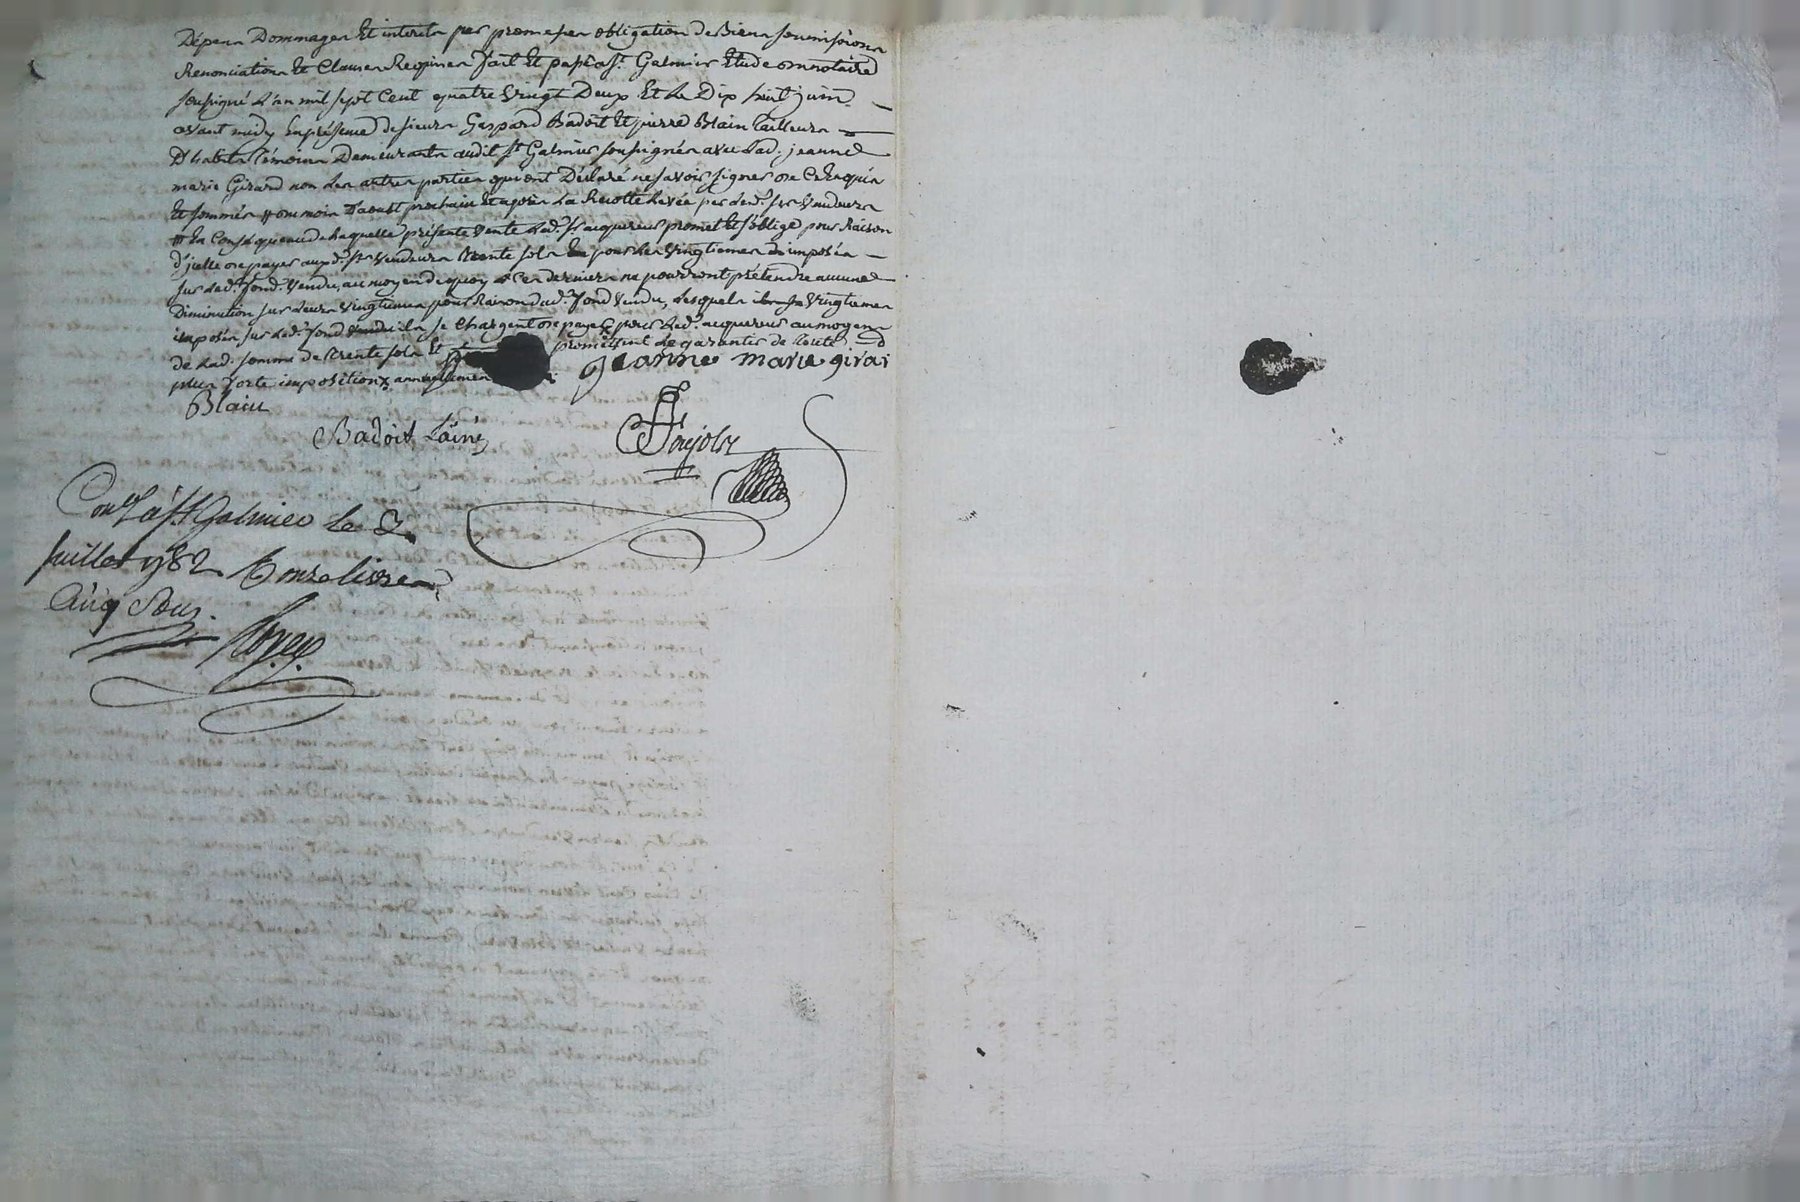 Dépens Dommages Et interets par promesses obligation de Biens soumissions
Renonciations Et Clauses Requises fait Et passé a St. Galmier Etude du notaire
soussigné L'an mil sept Cent quatre vingt Deux Et Le Dix huit juin
avant midy En présence de sieurs Gaspard Badoit Et pierre Blain Tailleurs
D'habits témoins Demeurants audit St Galmier soussignés avec Lad. jeanne
marie Girard non Les autres parties qui ont Déclaré ne savoir signer de ce Enquis
Et sommés au mois D'aoust prochain Et après La Recolte Levée par Led. srs vendeurs
En Conséquence de Laquelle présente vente Led. sr acquereur promet Et s'oblige pour Raison
d'jcelle de payer auxd. srs vendeurs trente sols pour Les vingtiemes imposés
sur Led. fond vendu, au moyen de quoy Ces derniers ne pourront prétendre aucune
Diminution sur Leurs vingtiemes pour Raison dud. fond vendu, Lesquels vingtiemes
imposés sur Led. fond ils se Chargent de payer pour Led. acquereur au moyen
de Lad. somme de trente sols Et promettent Le garantir de toute
plus forte imposition annuellement
jeanne marie girar
Blain
Badoit L'ainé
Pujols
Conlé à St Galmier le 2
Juillet 1782 Onze livres
Cinq Sous.